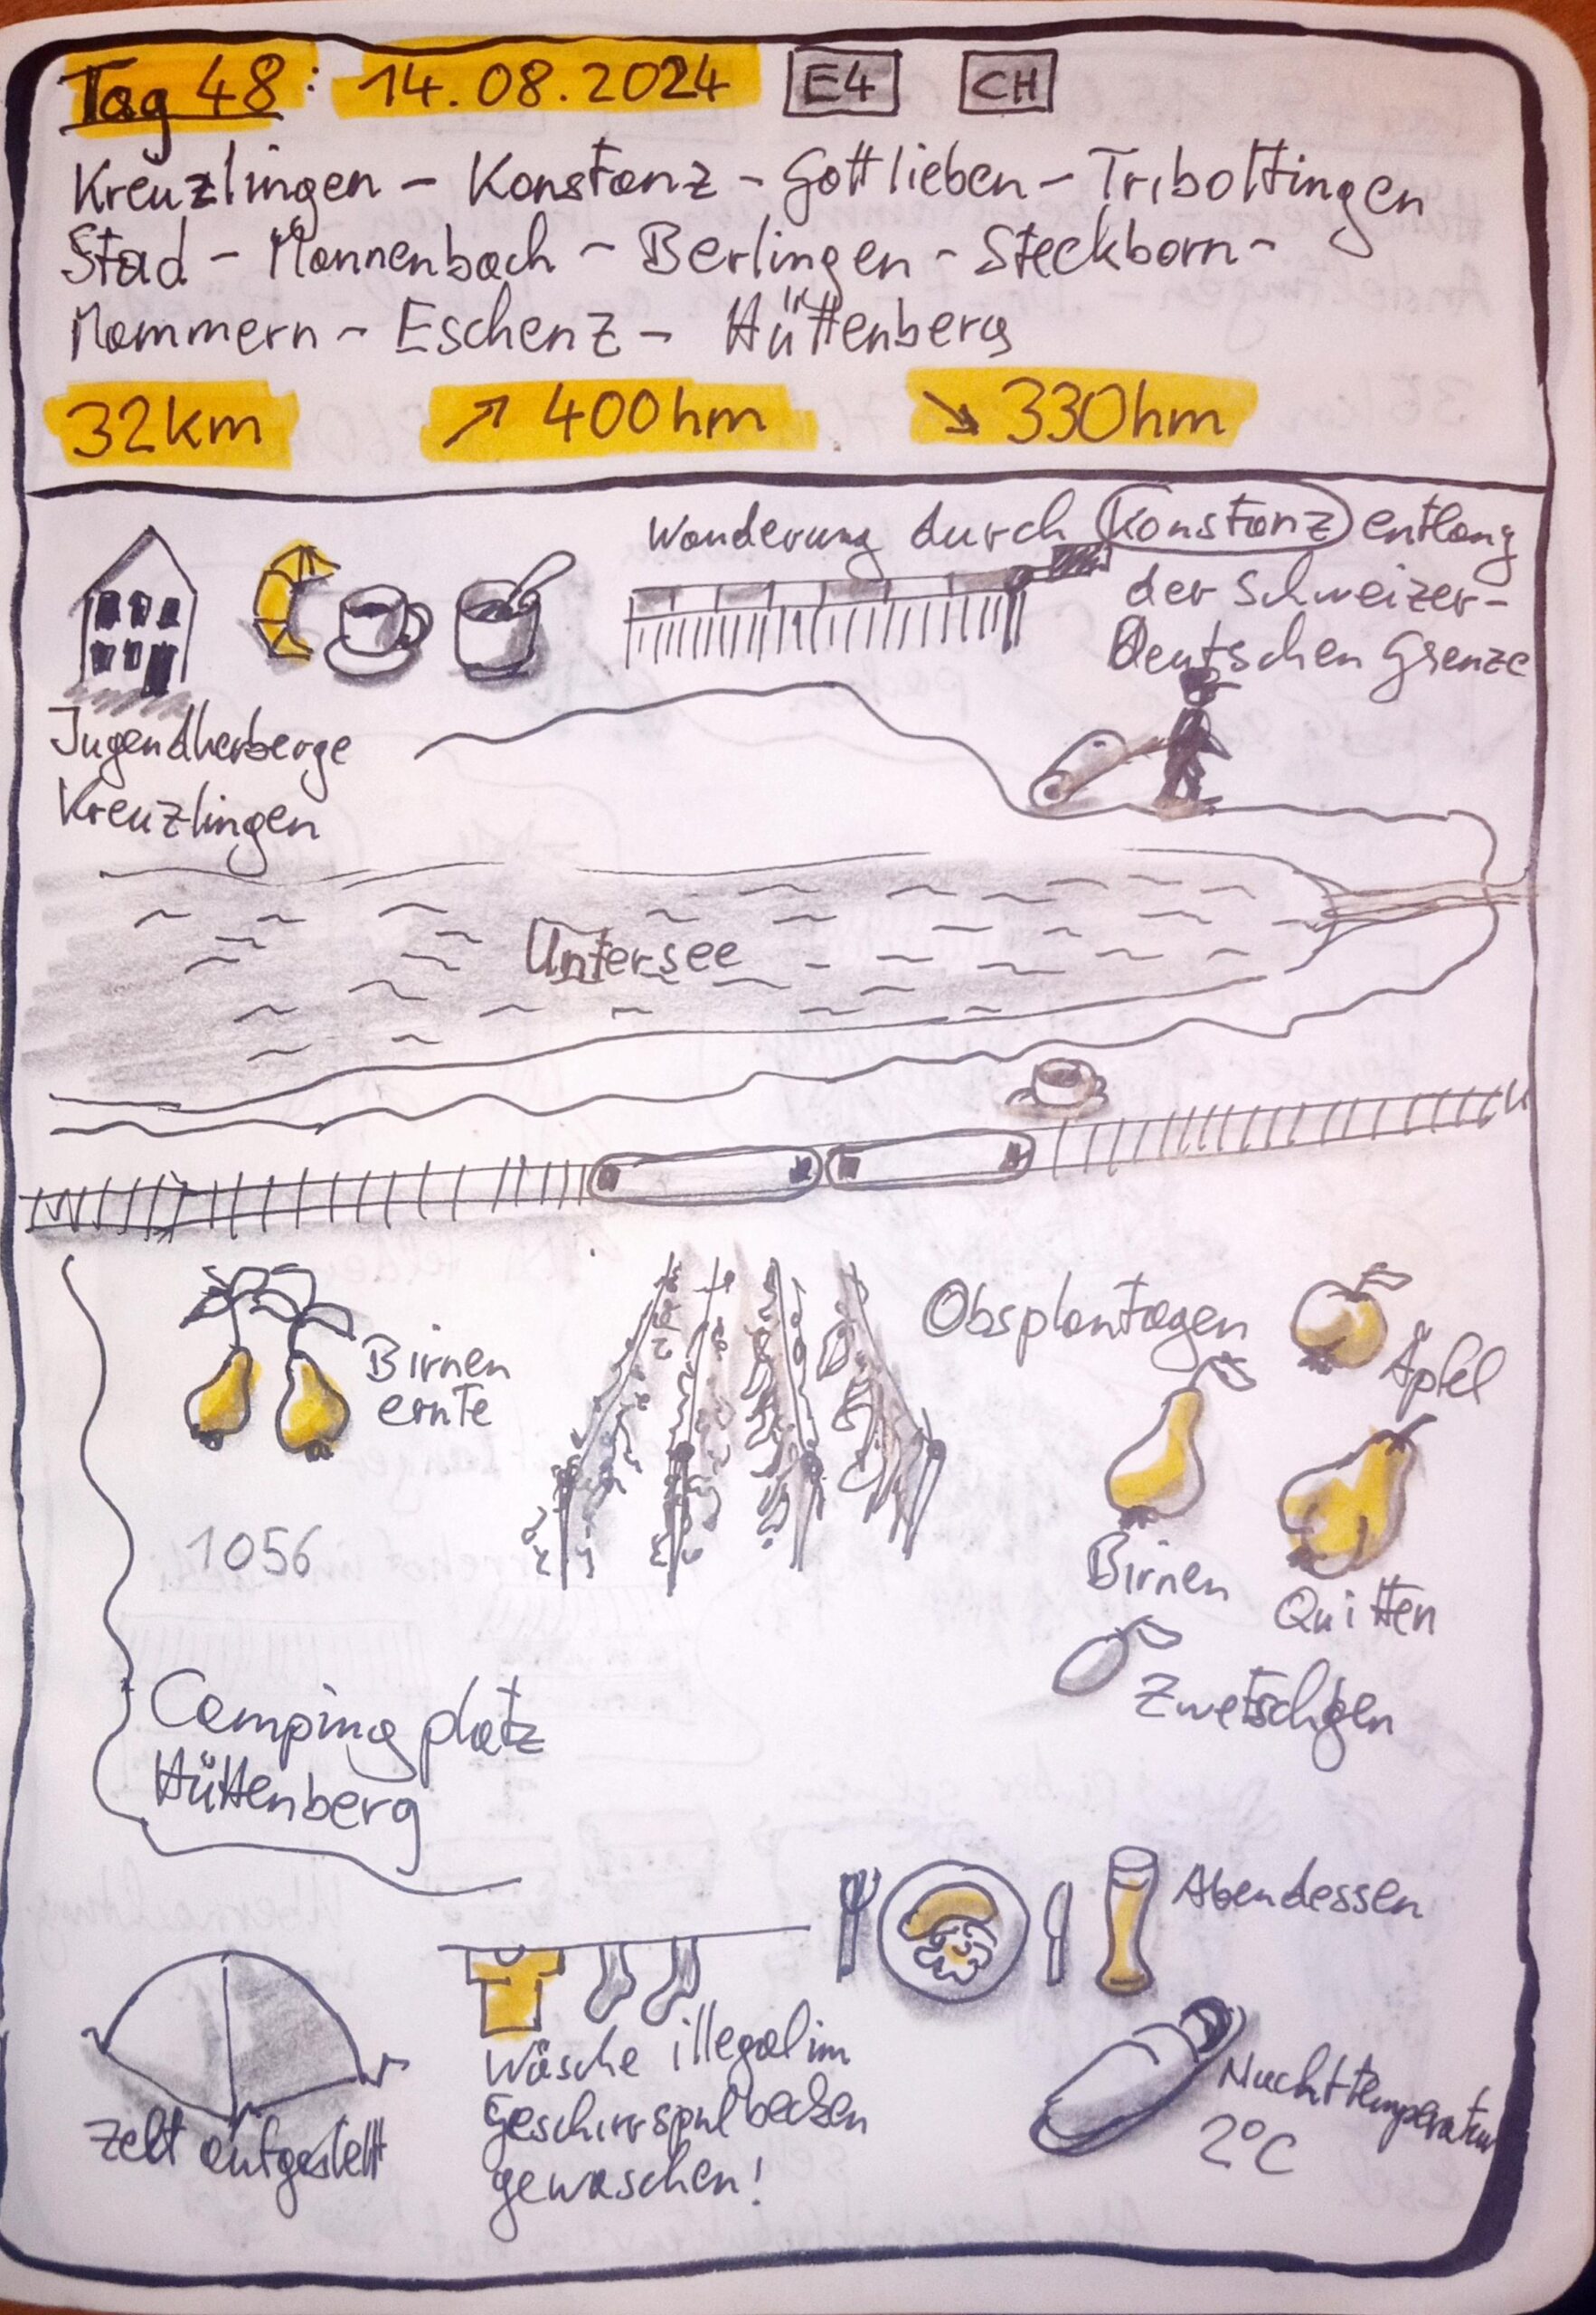 Tag 48: 14.08.2024 E4 CH
Kreuzlingen - Konstanz - Gottlieben - Triboltingen
Stad - Mannenbach - Berlingen - Steckborn -
Mammern - Eschenz - Hüttenberg
32km ↗ 400hm ↘ 330hm
Wanderung durch Konstanz entlang
der Schweizer-
Deutschen Grenze
Jugendherberge
Kreuzlingen
Untersee
Birnen
ernte
Obsplantagen
Äpfel
1056
Birnen
Quitten
Zwetschgen
Campingplatz
Hüttenberg
Abendessen
Zelt aufgestellt
Wäsche illegal im
Geschirrspülbecken
gewaschen!
Nachttemperatur
2°C